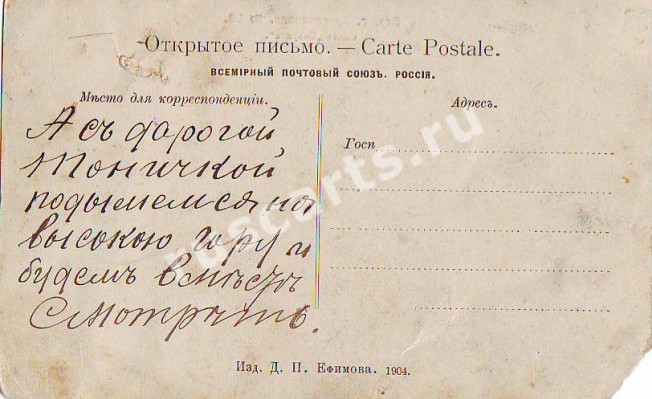 Открытое письмо. — Carte Postale.
ВСЕМІРНЫЙ ПОЧТОВЫЙ СОЮЗЪ. РОССІЯ.
Мѣсто для корреспонденціи.
Адресъ.
А съ дарогой
Тоничкой
Госп
подымемся на
высокою гору и
будемъ вмѣстѣ
Смотрѣть.
Изд. Д. П. Ефимова. 1904.
ruscarts.ru